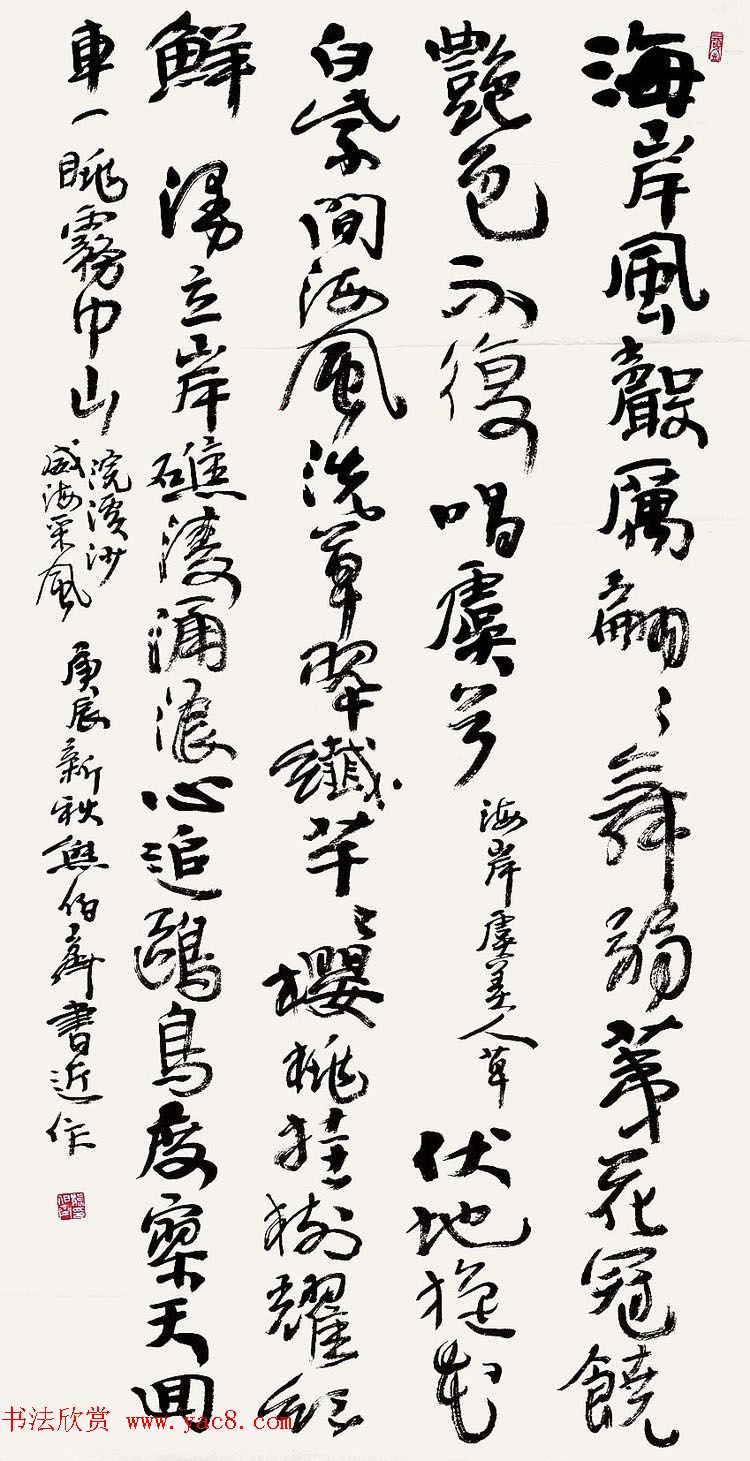 海岸風聲厲翩々舞弱茅花冠饒
艷色不復唱虞兮
海岸虞美人草
伏地施花
白紫間海風洗草翠纖芊々櫻桃挂樹耀紅
鮮 漫立岸礁淩涌浪心追鷗鳥度寥天回
車一眺霧中山
浣溪沙
威海采風
庚辰新秋熊伯齊書近作
书法欣赏 www.yac8.com